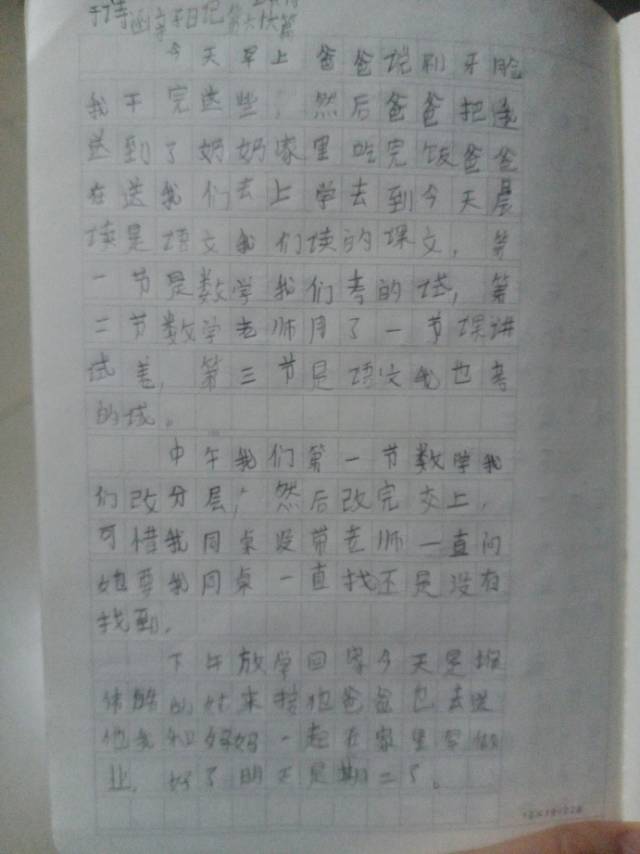 日记
今天早上爸爸说刷牙脸
我干完这些，然后爸爸把我
送到了奶奶家里吃完饭爸爸
在送我们去上学去到今天晨
读是语文我们读的课文，第
一节是数学我们考的试，第
二节数学老师用了一节课讲
试卷，第三节是语文我也考
的试。
中午我们第一节数学我
们改分层，然后改完交上，
可惜我同桌没带老师一直问
她要我同桌一直找还是没有
找到。
下午放学回家今天是
来接他爸爸也去送
他我和妈妈一起在家里写作
业，好了明天是期二了。